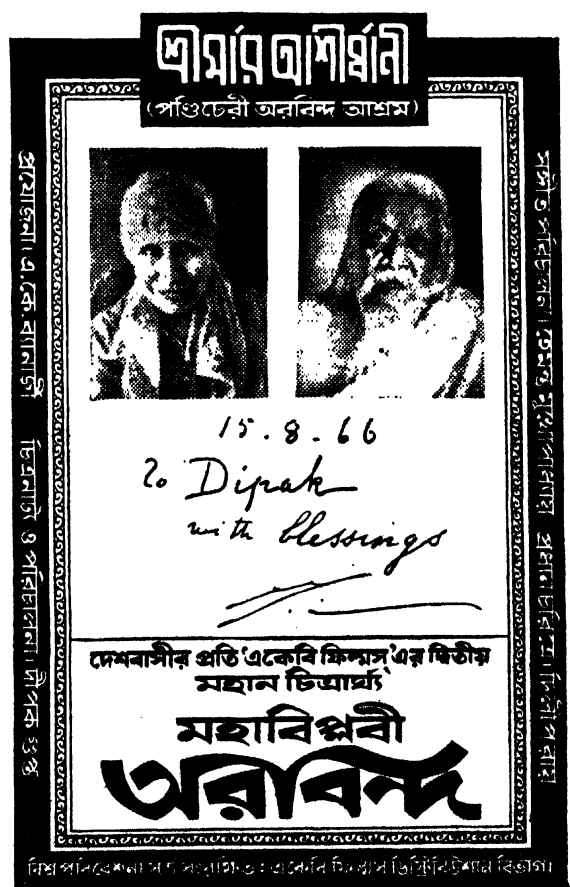 শ্রীমার আশীর্ব্বানী
(পণ্ডিচেরী অরবিন্দ আশ্রম)
প্রযোজনা। এ. কে. ব্যানার্জী চিত্রনাট্য ও পরিচালনা। দীপক গুপ্ত
সঙ্গীত পরিচালনা। হেমন্ত মুখোপাধ্যায় প্রধান চরিত্রে। দিলীপ রায়
15.8.66
To Dipak
with blessings
দেশবাসীর প্রতি 'একেবি ফিল্মস্'এর দ্বিতীয়
মহান চিত্রার্ঘ্য
মহাবিপ্লবী
অরবিন্দ
বিশ্ব পরিবেশনা একেবি ফিল্মস ডিস্ট্রিবিউশান বিভাগ।